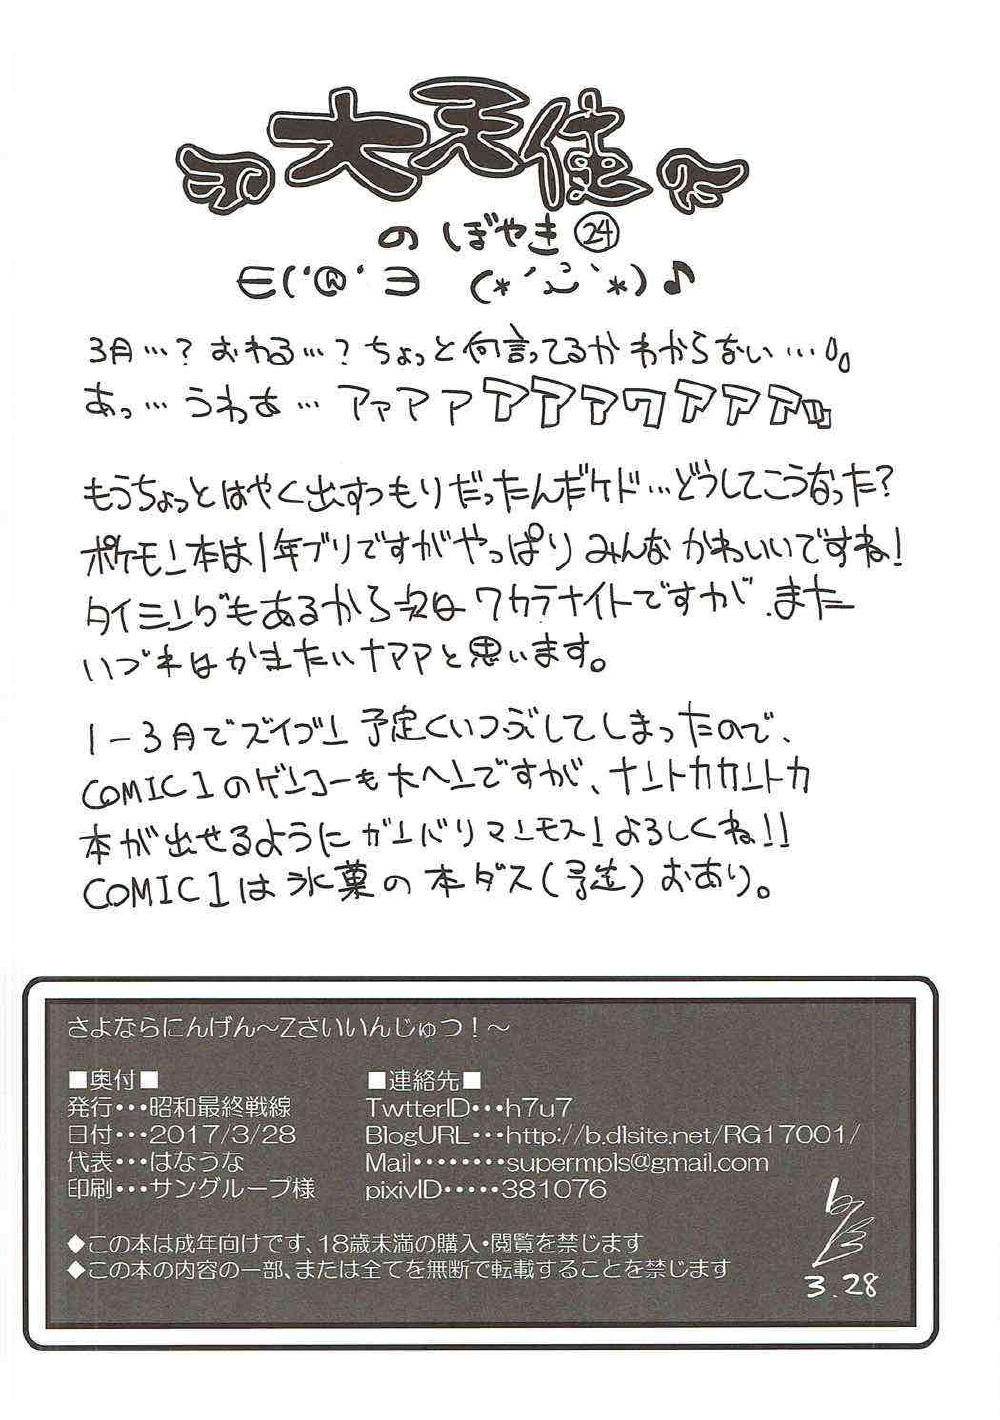 大天使
のぼやき㉔
∈('@'∋ (*´ـ`*)♪
3月…?おわる…?ちょっと何言ってるかわからない…
あっ…うわあ…アァアアアアァワアアア
もうちょっとはやく出すつもりだったんだケド…どうしてこうなった?
ポケモン本は1年ブリですがやっぱりみんなかわいいですね!
タイミングもあるから次はワカラナイトですが、また
いづれはかきたいナァアと思います。
1-3月でズイブン予定くいつぶしてしまったので、
COMIC1のゲンコーも大ヘンですが、ナントカカントカ
本が出せるようにガンバリマンモス!よろしくね!!
COMIC1は氷菓の本ダス(予定)おあり。
さよならにんげん~Zさいいんじゅつ!~
■奥付■
発行・・・昭和最終戦線
日付・・・2017/3/28
代表・・・はなうな
印刷・・・サングループ様
■連絡先■
TwtterID・・・h7u7
BlogURL・・・http://b.dlsite.net/RG17001/
Mail・・・・・・・・supermpls@gmail.com
pixivID・・・・・381076
◆この本は成年向けです、18歳未満の購入・閲覧を禁じます
◆この本の内容の一部、または全てを無断で転載することを禁じます
3.28